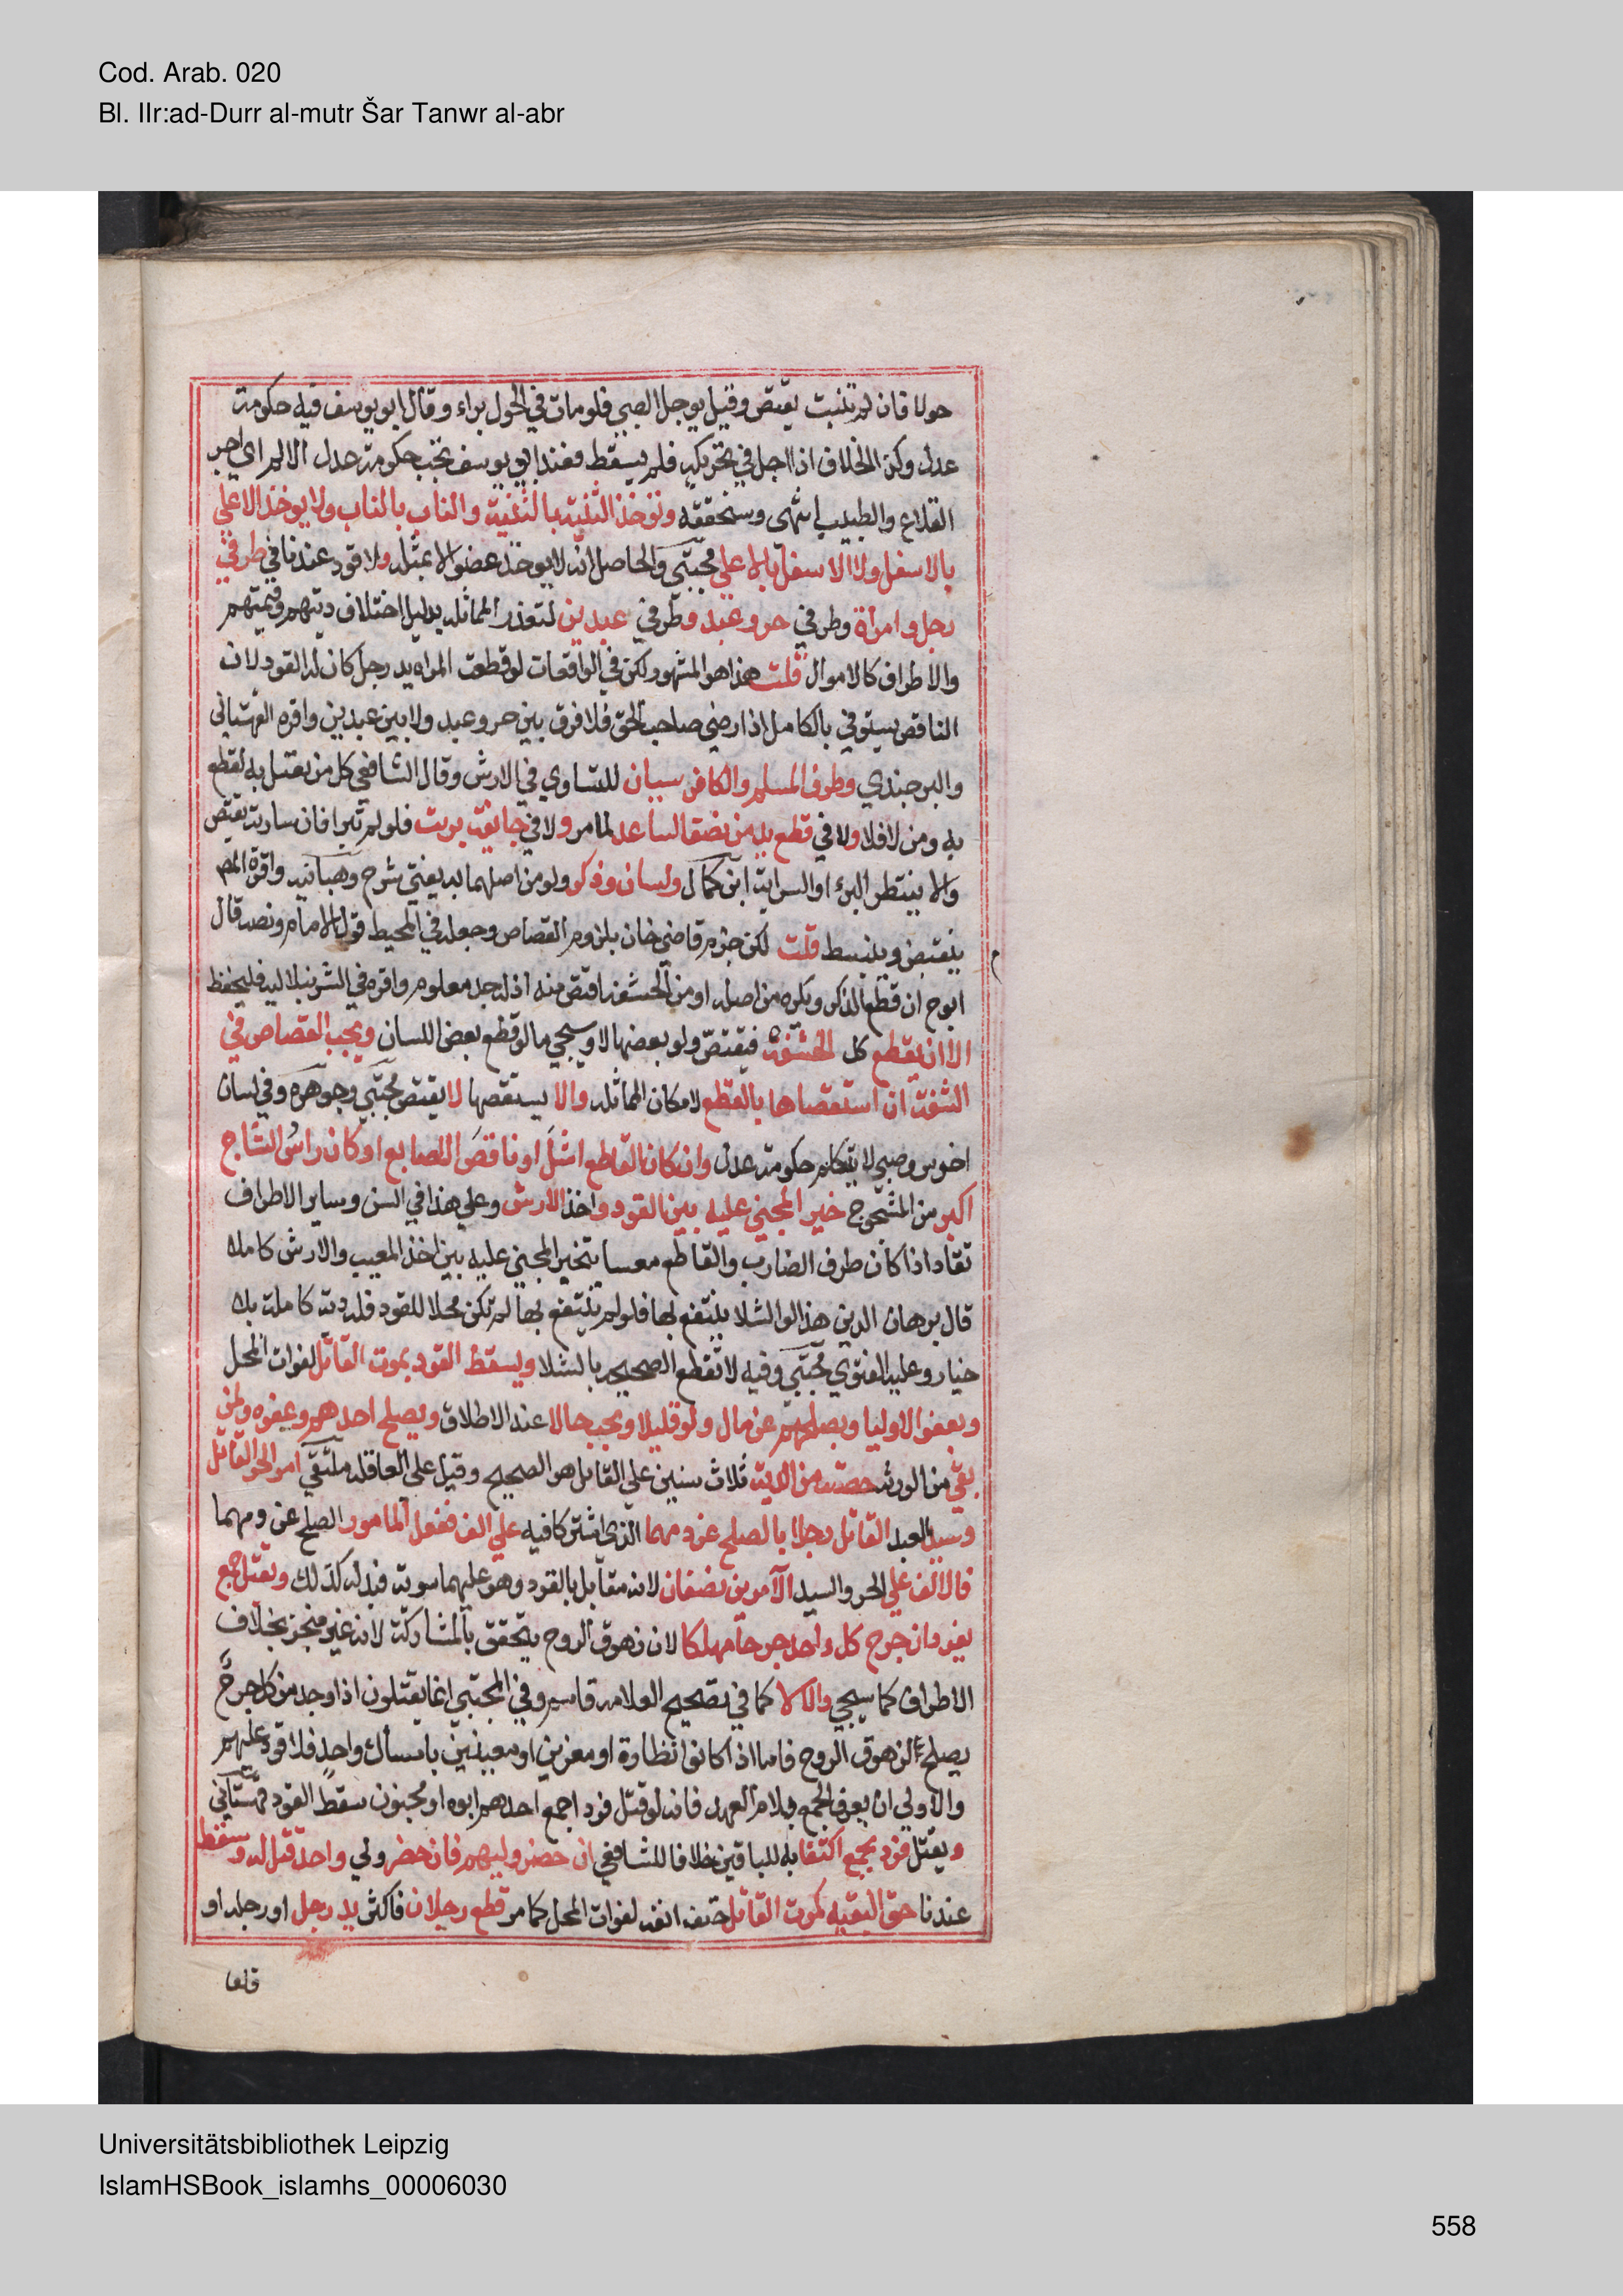 Cod. Arab. 020
Bl. IIr:ad-Durr al-mutr Šar Tanwr al-abr
حولا فان لم تنبت يقتص وقيل يوجل الصبي فلو مات في الحول براء وقال ابو يوسف فيه حكومة
عدل وكذ الخلاف اذا اجل في تحريكه فلم يسقط فعند ابي يوسف تجب حكومة عدل الالم اي اجر
القلاع والطبيب انتهى وسنحققه وتؤخذ الثنية بالثنية والناب بالناب ولا يوخذ الاعلي
بالاسفل ولا الاسفل بالاعلي مجتبي والحاصل انه لا يوخذ عضو الا بمثله ولا قود عندنا في طرفي
رجل وامراة وطرفي حر وعبد وطرفي عبدين لتعذر المماثله بدليل اختلاف ديتهم وقيمتهم
والاطراف كالاموال قلت هذا هو المشهور لكن في الواقعات لو قطعت المراه يد رجل كان له القود لان
الناقص يستوفي بالكامل اذا رضي صاحب الحق فلا فرق بين حر وعبد ولا بين عبدين واقره القهستاني
والبرجندي وطرف المسلم والكافر سيان للتساوي في الارش وقال الشافعي كل من يقتل به يقطع
به ومن لا فلا ولا في قطع يد من نصف الساعد لما مر ولا في جايفة بريت فلو لم تبرا فان سارية يقتص
والا ينتظر البرء او السراية ابن كمال ولسان وذكر ولو من اصلهما به يفتي شرح وهبانيه واقره المص
ينقبض وينبسط قلت لكن جزم قاضي خان بلزوم القصاص وجعله في المحيط قول الامام ونصه قال
ابو ح ان قطع الذكر ويكره من اصله او من الحشفة اقتص منه اذ له حد معلوم واقره في الشرنبلاليه فليحفظ
الا ان يقطع كل الحشفة فيقتص ولو بعضها لا وسيجي ما لو قطع بعض اللسان ويجب القصاص في
الشفة ان استقصاها بالقطع لامكان المماثله والا يستقصها لا يقتص مجتبي وجوهره وفي لسان
اخرس وصبي لا يتكلم حكومة عدل وان كان القاطع اشل او ناقص الاصابع او كان راس الشاج
اكبر من المشجوج خير المجني عليه بين القود واخذ الارش وعلي هذا في السن وساير الاطراف
تقاد اذا كان طرف الضارب والقاطع معيبا يتخير المجني عليه بين اخذ المعيب والارش كامله
قال برهان الدين هذا لو الشلا ينتفع بها فلو لم ينتفع بها لم تكن محلا للقود فله دية كاملة بلا
خيار وعليه الفتوي مجتبي وفيه لا تقطع الصحيحه بالشلا ويسقط القود بموت القاتل لفوات المحل
وبعفو الاوليا وبصلحهم عن مال ولو قليلا ويجب حالا عند الاطلاق وبصلح احدهم وعفوه ولمن
بقي من الورثه حصته من الدية ثلاث سنين علي القاتل هو الصحيح وقيل علي العاقله ملتقي امر الحر القاتل
وسيد العبد القاتل رجلا بالصلح عن دمهما الذي اشتركا فيه علي الف ففعل المامور الصلح عن دمهما
فالالف علي الحر والسيد الآمرين نصفان لانه مقابل بالقود وهو عليهما سوية فبدله كذلك ويقتل جمع
بفرد ان جرح كل واحد جرحا مهلكا لان زهوق الروح يتحقق بالمشاركة لانه غير متجز بخلاف
الاطراف كما سيجي والا لا كما في تصحيح العلامه قاسم وفي المجتبي انما يقتلون اذا وجد من كل جرح
يصلح لزهوق الروح فاما اذا كانوا نظارة او مغرين او معينين بامساك واحد فلا قود عليهم
والاولي ان يعرف الجمع بلام العهد فانه لو قتل فرد اجمع احدهم ابوه او مجنون سقط القود قهستاني
ويقتل فرد بجمع اكتفا به للباقين خلافا للشافعي ان حضر وليهم فان حضر ولي واحد قتل له وسقط
عندنا حق البقيه كموت القاتل حتف انفه لفوات المحل كما مر قطع رجلان فاكثر يد رجل او رجله او
قلعا
Universitätsbibliothek Leipzig
IslamHSBook_islamhs_00006030
558